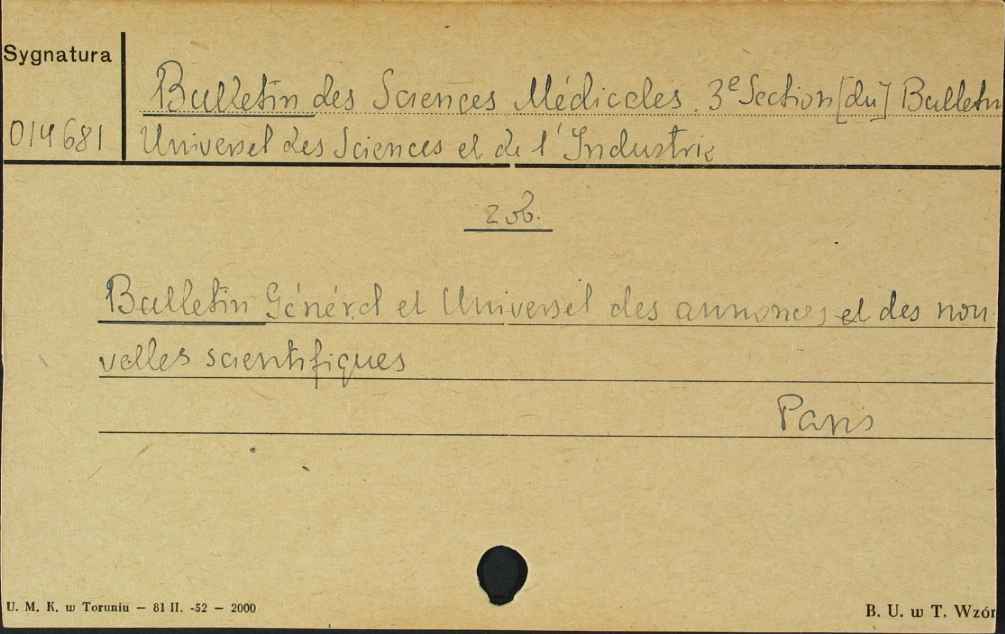 Sygnatura
Bulletin des Sciences Médicales. 3e Section [du] Bulletin
014681 Universel des Sciences et de l'Industrie
zob.
Bulletin Général et Universel des annonces et des nou-
velles scientifiques
Paris
U. M. K. w Toruniu — 81 II. -52 — 2000
B. U. w T. Wzór